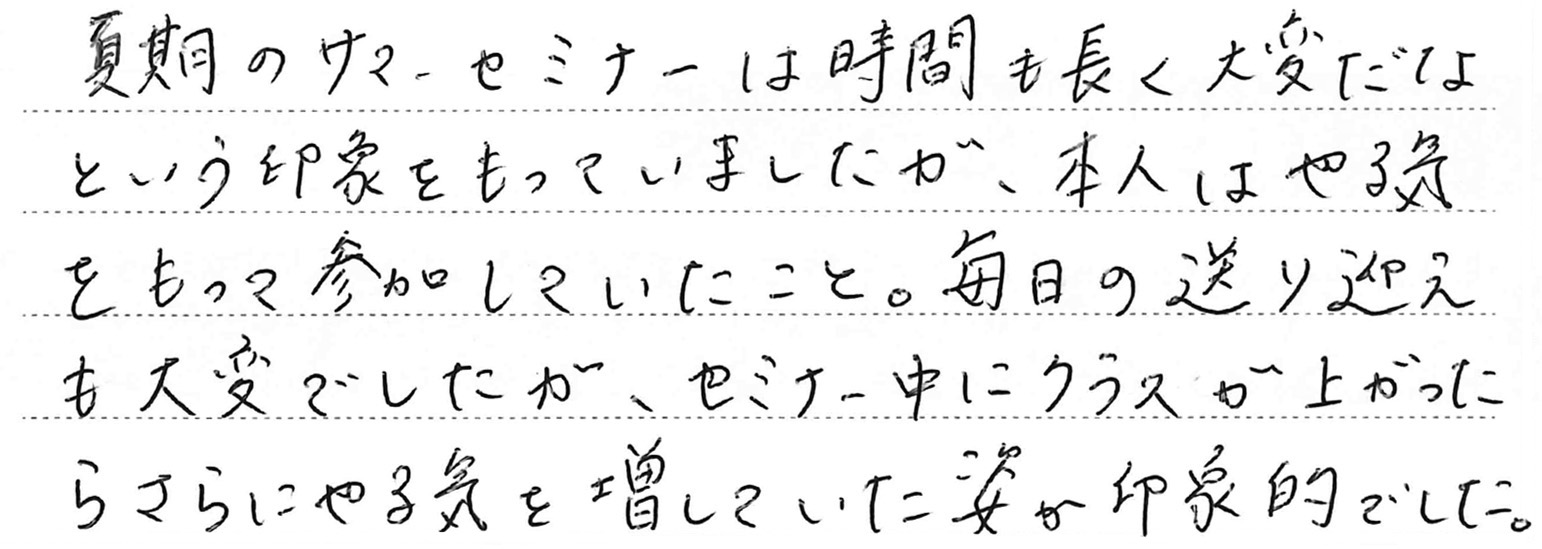 夏期のサマーセミナーは時間も長く大変だな
という印象をもっていましたが、本人はやる気
をもって参加していたこと。毎日の送り迎え
も大変でしたが、セミナー中にクラスが上がった
らさらにやる気を増していた姿が印象的でした。